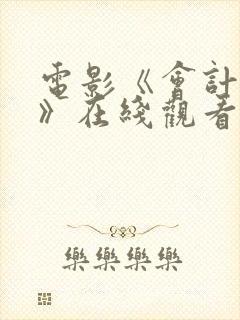 電影《會計
》在綫觀看
樂樂樂樂